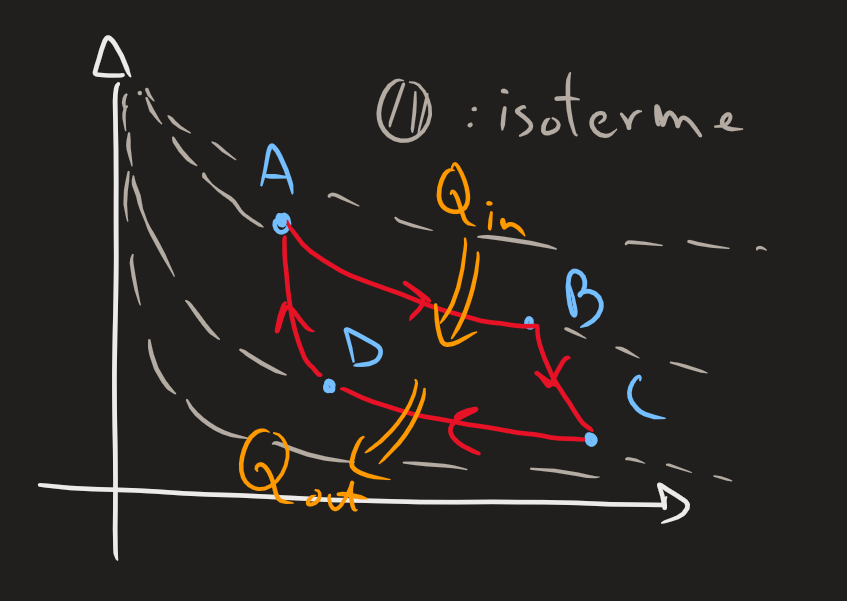 : isoterme
A
Qin
B
D
C
Qout